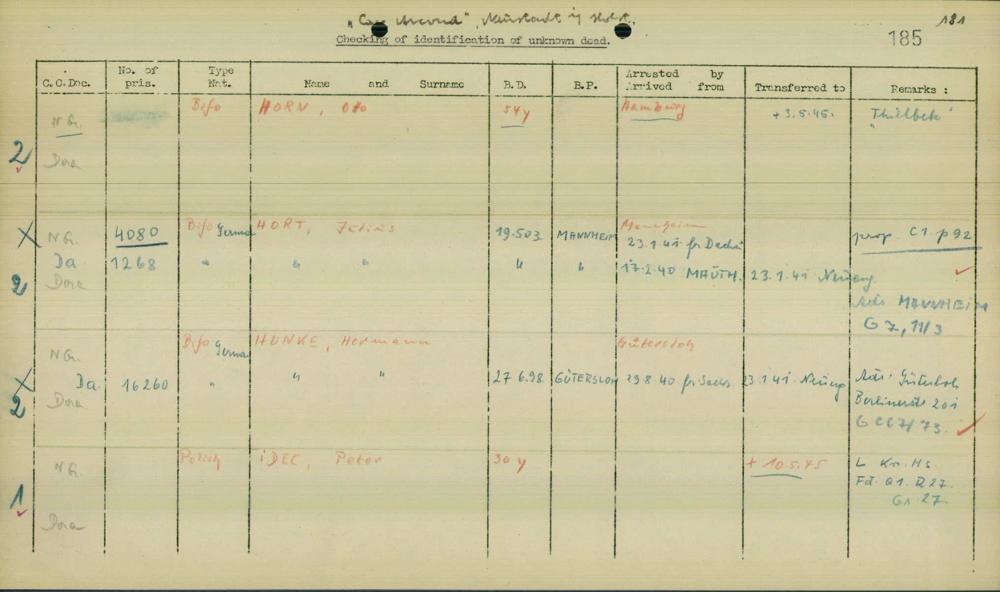 "Cap Arcona", Neustadt i/ Holst.
181
Checking of identification of unknown dead.
185
C.C.Doc. No. of pris. Type Nat. Name and Surname B.D. B.P. Arrested by Arrived from Transferred to Remarks :
N G. Bifo HORN, Otto 54 y Hamburg + 3.5.45. "Thielbek"
2 Dora
X N G. 4080 Bifo German HORT, Julius 19.5.03 MANNHEIM Mannheim 23.1.41 fr Dachau prop. C1. p 92
Da 1268 " " " " " 17.2.40 MAUTH. 23.1.41 Neueng
2 Dora
Adr. MANNHEIM
G 7, 11/3
N G. Bifo German HUNKE, Hermann Gütersloh
X Da. 16260 " " " 27 6.98 GÜTERSLOH 29.8 40 fr Sachs. 23.1 41 Neueng Adr. Gütersloh
2 Dora Berlinerstr 201
N G. Polish IDEC, Peter 30 y + 10.5.45 L. Kr. Hs.
Fd. Q1. R 27.
1 Gr. 27.
Dora